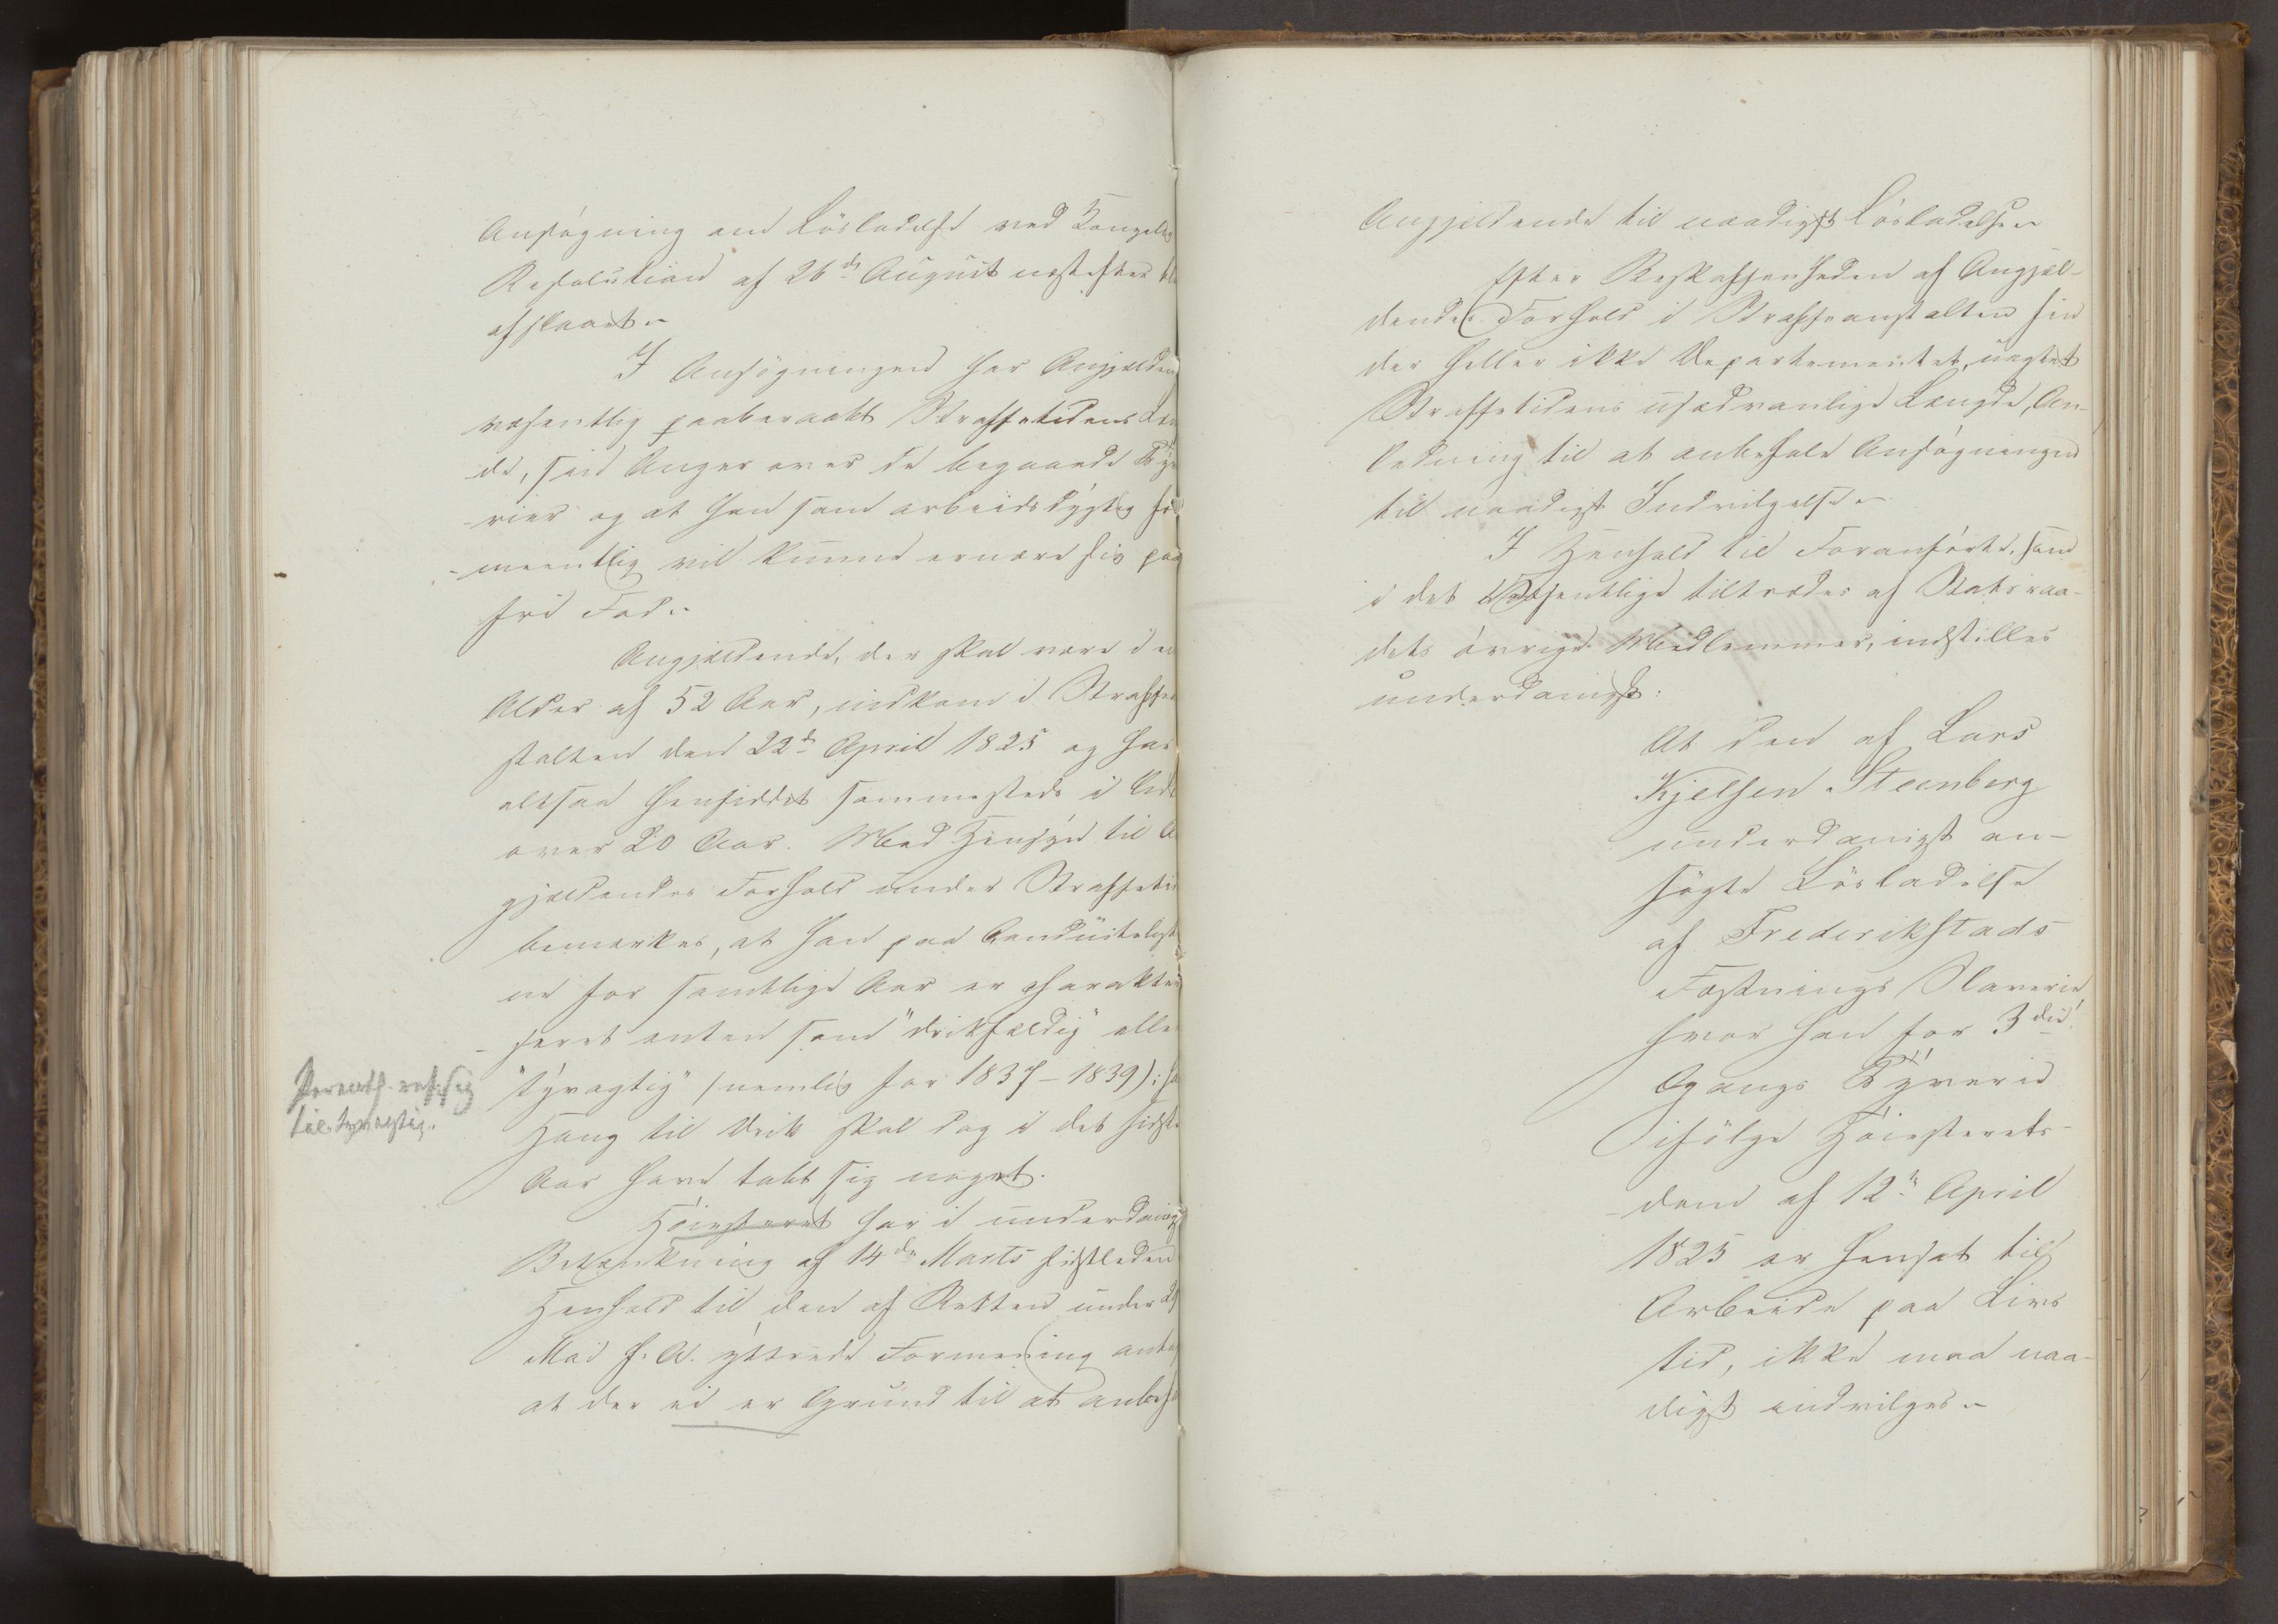 Ansøgning om Løsladelse ved Kongelig
Resolution af 26de August næstefter ble
afslaaet.
I Ansøgningen har Angjælden
væsentlig paaberaabt Straffetidens Læn
de, sin Anger over de begaaede Ty
rier og at han som arbeidsdygtig
meentlig vil kunne ernære sig paa
fri Fod.
Angjældende, der skal være i en
Alder af 52 Aar, indkom i Straffean
stalten den 22de April 1825 og har
altsaa hensiddet sammesteds i lidt
over 20 Aar. Med Hensyn til A
gjældendes Forhold under Straffetid
bemærkes, at han paa Conduitelist
ne for samtlige Aar er charakteri
seret enten som "drikfældig" eller
"tyvagtig" (nemlig for 1837-1839); ha
Hang til Drik skal dog i det sidste
Aar have tabt sig noget.
Parenth. ref. sig
til tyvagtig.
Høiesteret har i underdanig
Betænkning af 14de Marts sidstleden
Henhold til den af Retten under 29
Mai f. A. yttrede Formening antag
at der ei er Grund til at anbefal
Angjældende til naadigst Løsladelse.
Efter Beskaffenheden af Angjæl-
dendes Forhold i Straffeanstalten fin
der heller ikke Departementet, uagtet
Straffetidens usædvanlige Længde, An-
ledning til at anbefale Ansøgningen
til naadigst Indvilgelse.
I Henhold til Foranførte, som
i det Væsentlige tiltrædes af Statsraa-
dets øvrige Medlemmer, indstilles
underdanigst:
At den af Lars
Kjelsen Steenberg
underdanigst an-
søgte Løsladelse
af Frederikstads
Fæstnings Slaverie
hvor han for 3die
Gangs Tyverie
ifølge Høiesterets-
dom af 12te April
1825 er hensat til
Arbeide paa Livs
tid, ikke maa naa-
digst indvilges.